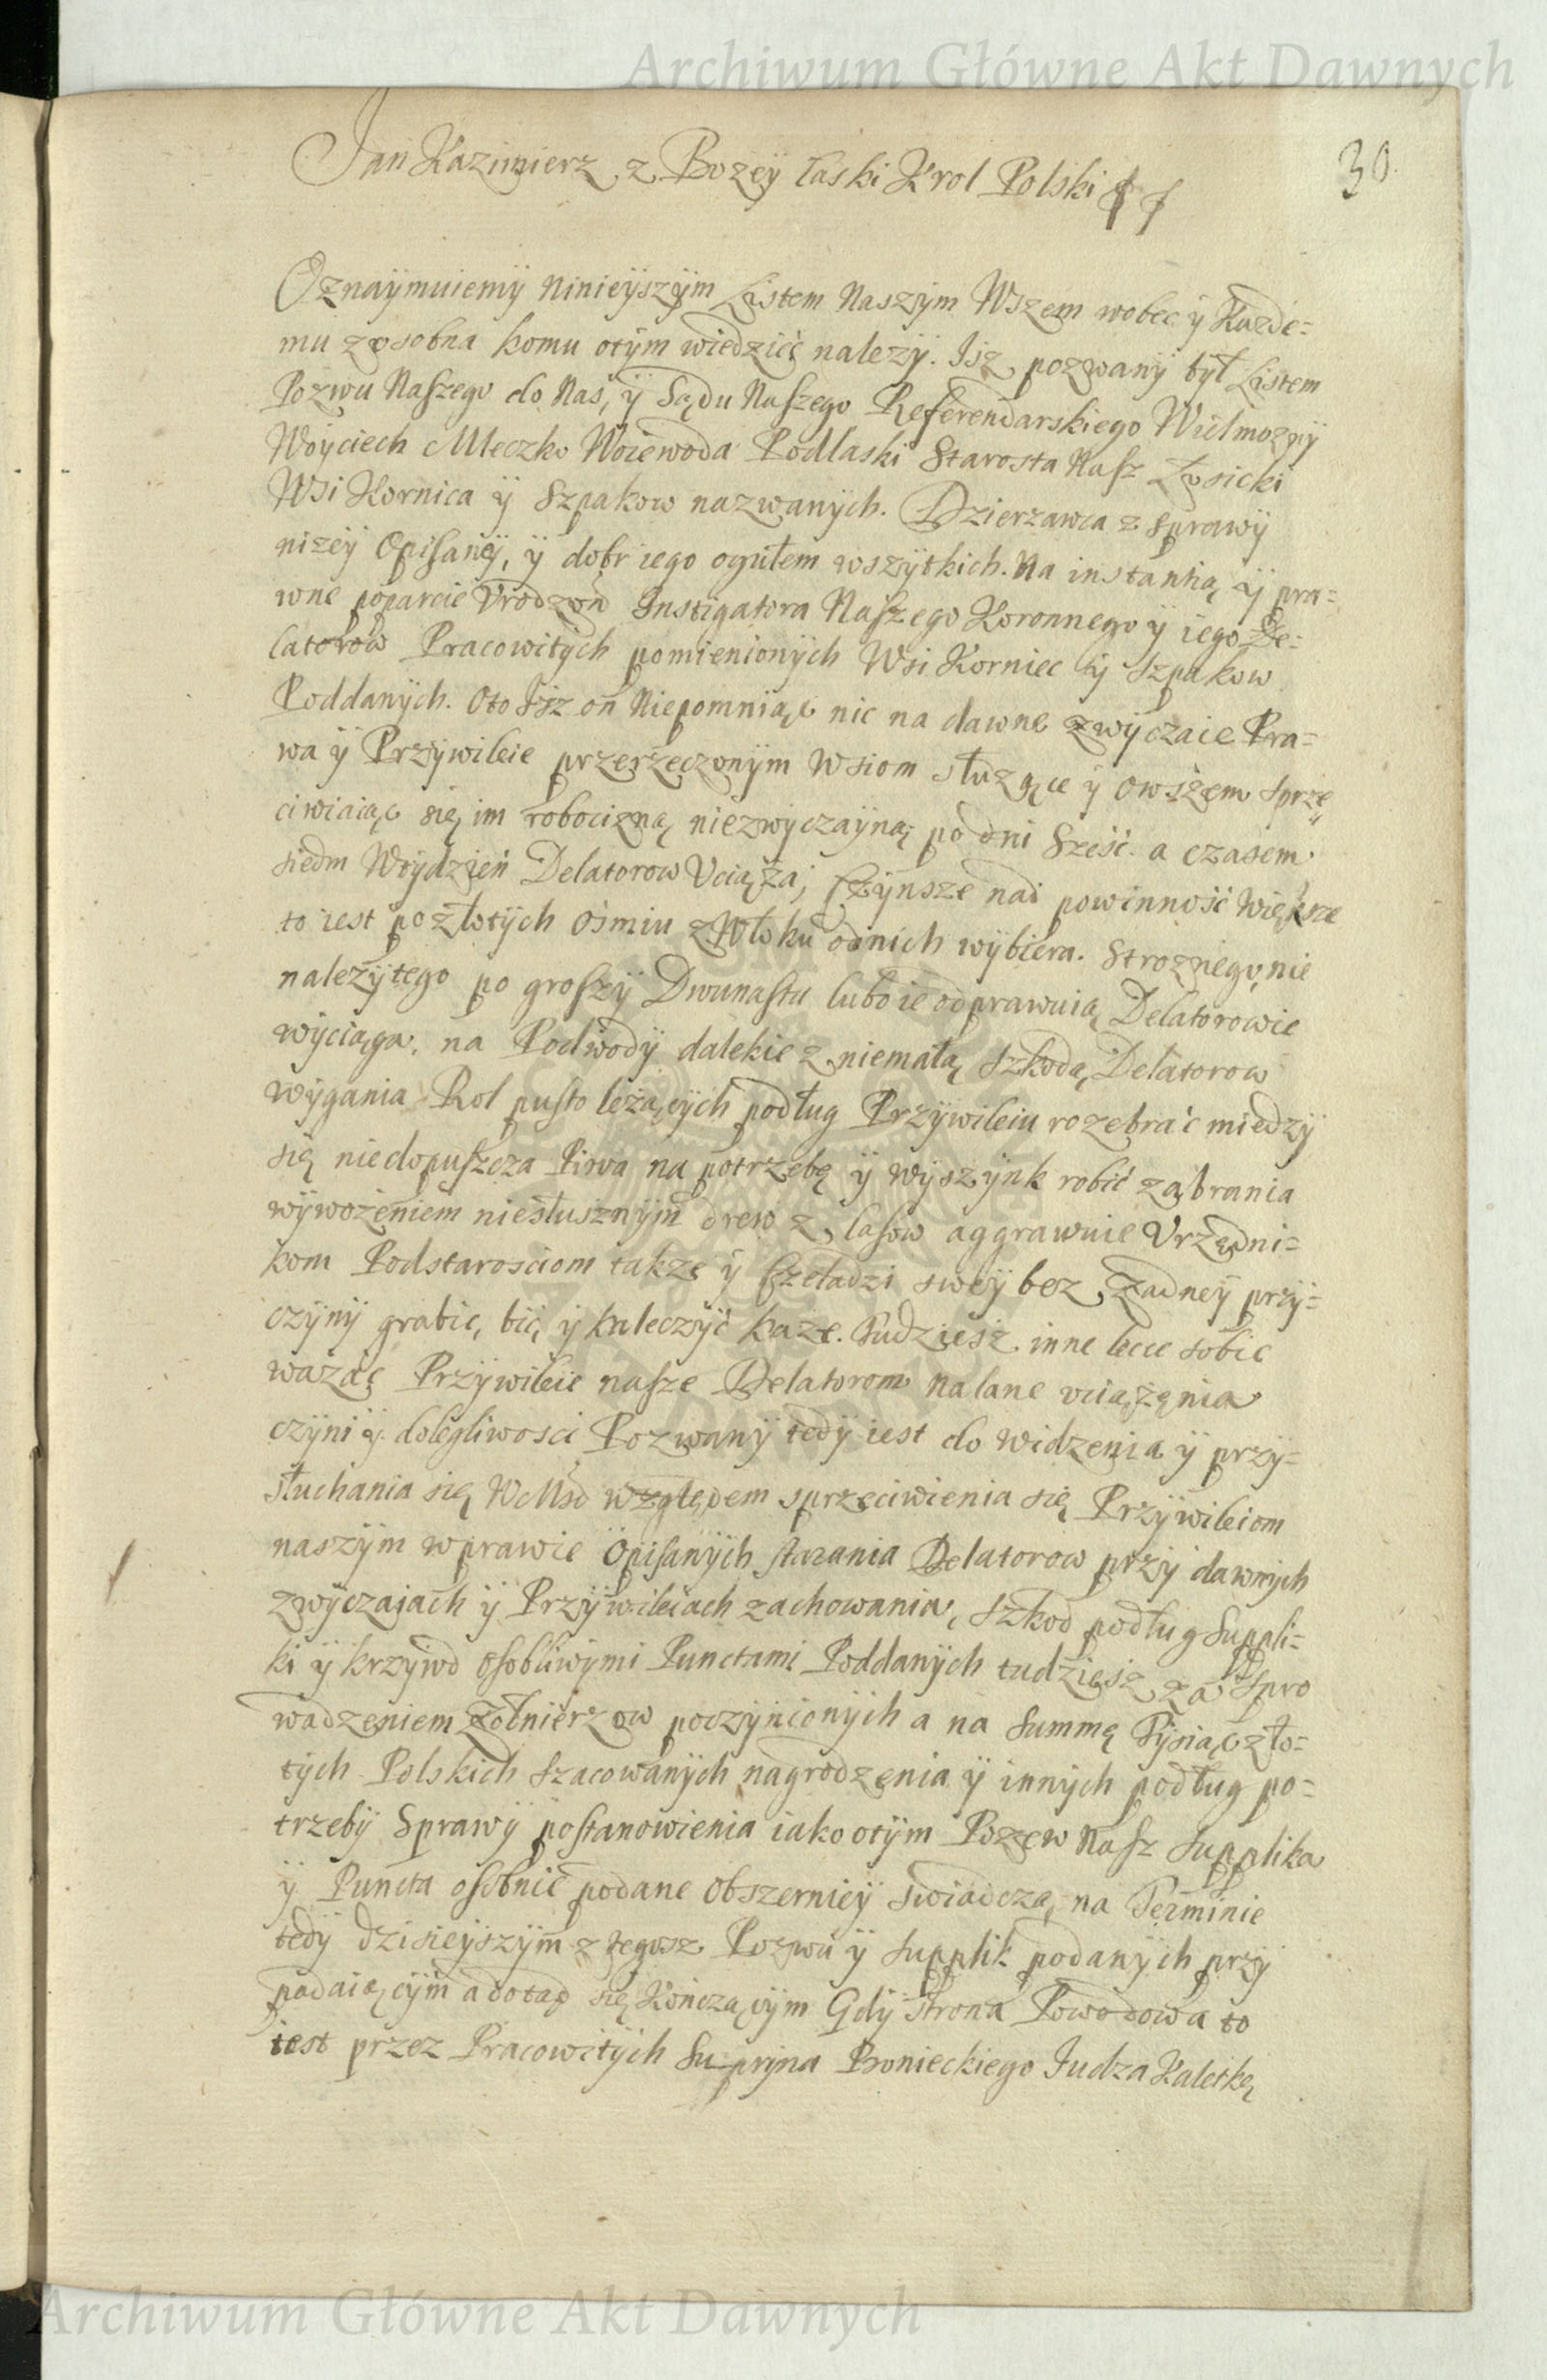 Archiwum Główne Akt Dawnych
30.
Jan Kazimierz z Bozey łaski Krol Polski
Oznaÿmuiemÿ Ninieÿszÿm Listem Naszÿm Wszem wobec ÿ Kazde=
mu zosobna komu otÿm wiedzièć nalezÿ. Jsz pozwanÿ był Listem
Pozwu Naszego do Nas, ÿ Sądu Naszego Referendarskiego Wielmoznÿ
Woÿciech Mleczko Woiewoda Podlaski Starosta Nasz Łosicki
Wsi Kornica ÿ Szpakow nazwanÿch. Dzierzawca z Sprawÿ
nizeÿ Opisaneÿ, ÿ dobr iego ogułem wszÿtkich. Na instantią ÿ pra=
wne poparcie Vrodzon Instigatora Naszego Koronnego ÿ iego De=
latorow Pracowitÿch pomienionÿch Wsi Korniec ÿ Szpakow
Poddanÿch. Oto Jsz on Niepomniąc nic na dawne zwÿczaie Pra=
wa ÿ Przÿwileie przerzeczonÿm Wsiom słuzące ÿ owszem sprze
ciwiaiąc się im robocizną niezwÿczaÿną po dni Sześć. a czasem
siedm Wtÿdzień Delatorow Vciąza, Czÿnsze nad powinność Większe
to iest po złotÿch Ośmiu z Włoku odnich wÿbiera. Stroznego nie
nalezÿtego po groszÿ Dwunastu lubo ie odprawuią Delatorowie
wÿciąga. na Podwodÿ dalekie z niemałą szkodą Delatorow
wÿgania Rol pusto lezącÿch podług Przÿwileiu rozebrać miedzÿ
się niedopuszcza Piwa na potrzebę ÿ wÿszÿnk robić zabrania
wÿwozeniem niesłusznÿm drew z lasow aggrawuie Vrzędni=
kom Podstarosciom takze ÿ Czeladzi sweÿ bez zadneÿ przÿ=
czÿnÿ grabic, bić, ÿ kaleczÿć kaze. Tudziesz inne lece sobie
waząc Przÿwileie nasze Delatorom nalane vciązenia
czÿni ÿ. dolegliwosci Pozwanÿ tedÿ iest do widzenia ÿ przÿ=
słuchania się względem sprzeciwienia się Przÿwileiom
naszÿm wprawie Opisanÿch starania Delatorow przÿ dawnÿch
zwÿczajach ÿ Przÿwileiach zachowania, szkod podług Suppli=
ki ÿ krzÿwd osobliwÿmi Punctami Poddanÿch tudziesz za Wspro
wadzeniem Zołnierzow poczÿnionÿch a na summę Tÿsiąc zło=
tÿch Polskich szacowanÿch nagrodzenia ÿ innÿch podług po=
trzebÿ Sprawÿ postanowienia iako otÿm Pozew Nasz Supplika
ÿ Puncta osobnie podane obszernieÿ swiadczą, na Terminie
tedÿ dzisieÿszÿm z tegosz Pozwu ÿ supplik podanÿch przÿ
padaiącÿm a dotąd się Kończącÿm Gdÿ strona Powodowa to
iest przez Pracowitÿch Suprÿna Bronieckiego Judza Kaletkę
Archiwum Główne Akt Dawnych